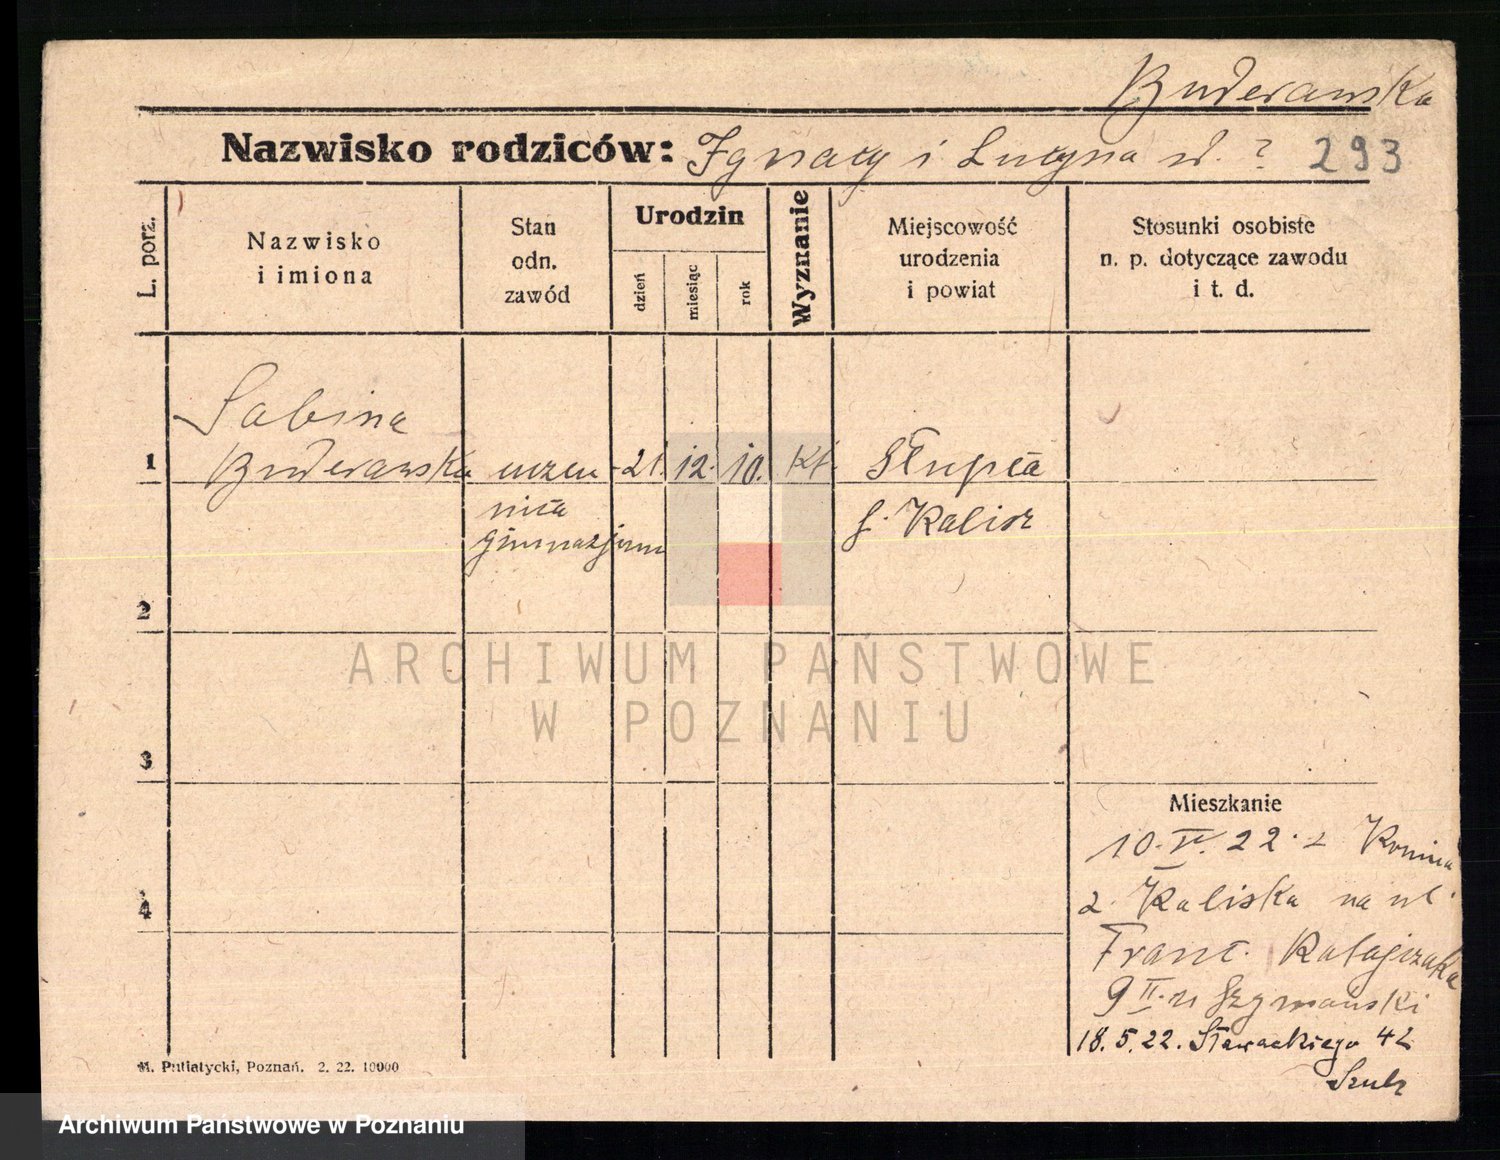 Buderawska
Nazwisko rodziców: Ignacy i Lucyna d. ? 293
L. porz.
Nazwisko
i imiona
Stan
odn.
zawód
Urodzin
dzień
miesiąc
rok
Wyznanie
Miejscowość
urodzenia
i powiat
Stosunki osobiste
n. p. dotyczące zawodu
i t. d.
Sabina
1 Buderawska uczen 21. 12. 10. kt. Słupca
nica
gimnazjum
g. Kalisz
2
3
4
Mieszkanie
10. IV. 22. z Konina
z. Kaliska na ul.
Franc. Ratajczaka
9 II. u Szymański
18. 5. 22. Słowackiego 42
Szulz
M. Putiatycki, Poznań. 2. 22. 10000
ARCHIWUM PAŃSTWOWE
W POZNANIU
Archiwum Państwowe w Poznaniu